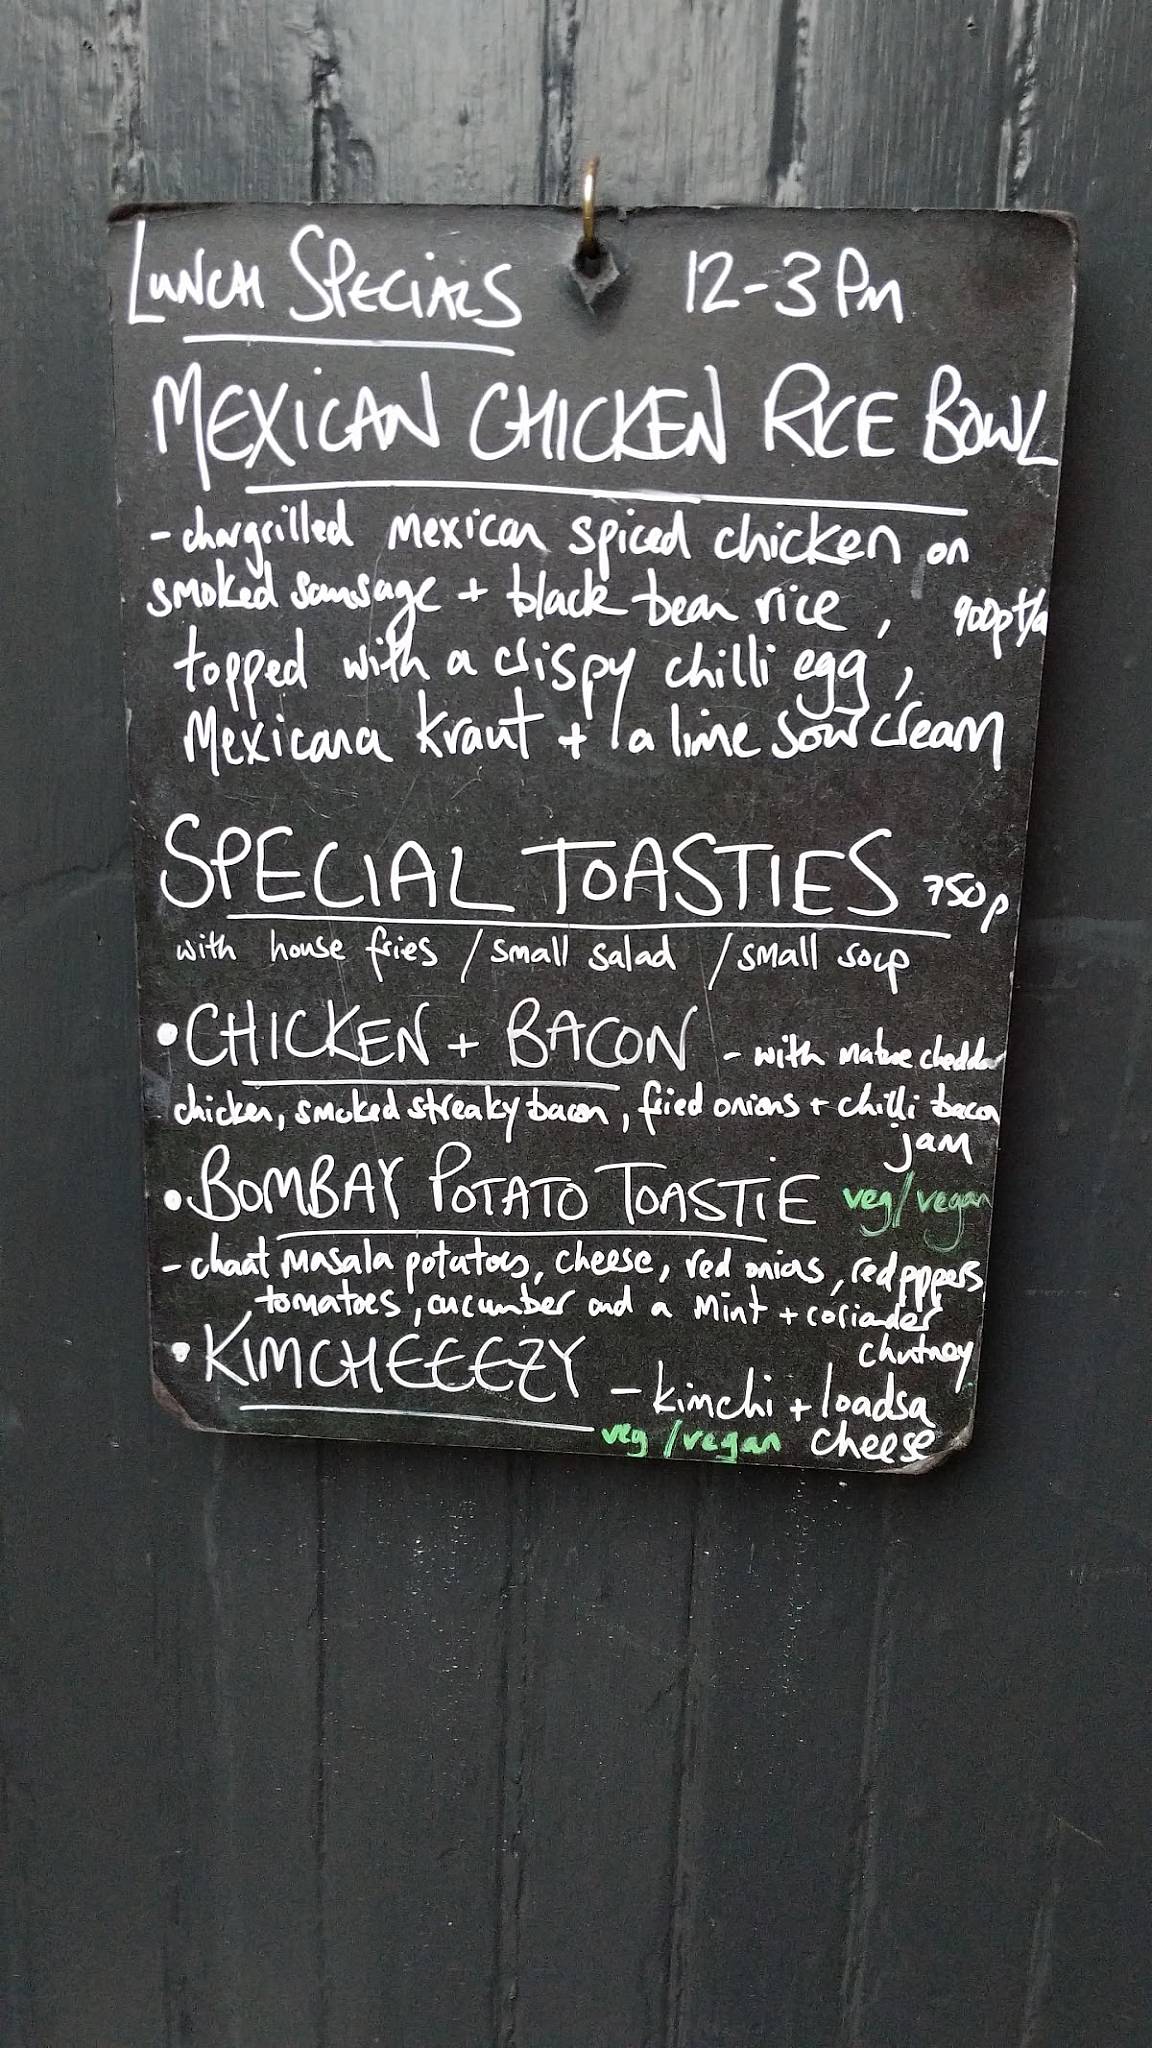 LUNCH SPECIALS 12-3 Pm
MEXICAN CHICKEN RICE BOWL
- chargrilled mexican spiced chicken on
smoked sausage + black bean rice,
topped with a crispy chilli egg,
Mexicana kraut + a lime sour cream
SPECIAL TOASTIES 750p
with house fries / small salad / small soup
• CHICKEN + BACON - with mature cheddar
chicken, smoked streaky bacon, fried onions + chilli bacon
jam
• BOMBAY POTATO TOASTIE veg/vegan
- chaat masala potatoes, cheese, red onions, red pppers
tomatoes, cucumber and a mint + coriander
chutney
• KIMCHEEEEZY - kimchi + loadsa
veg/vegan cheese